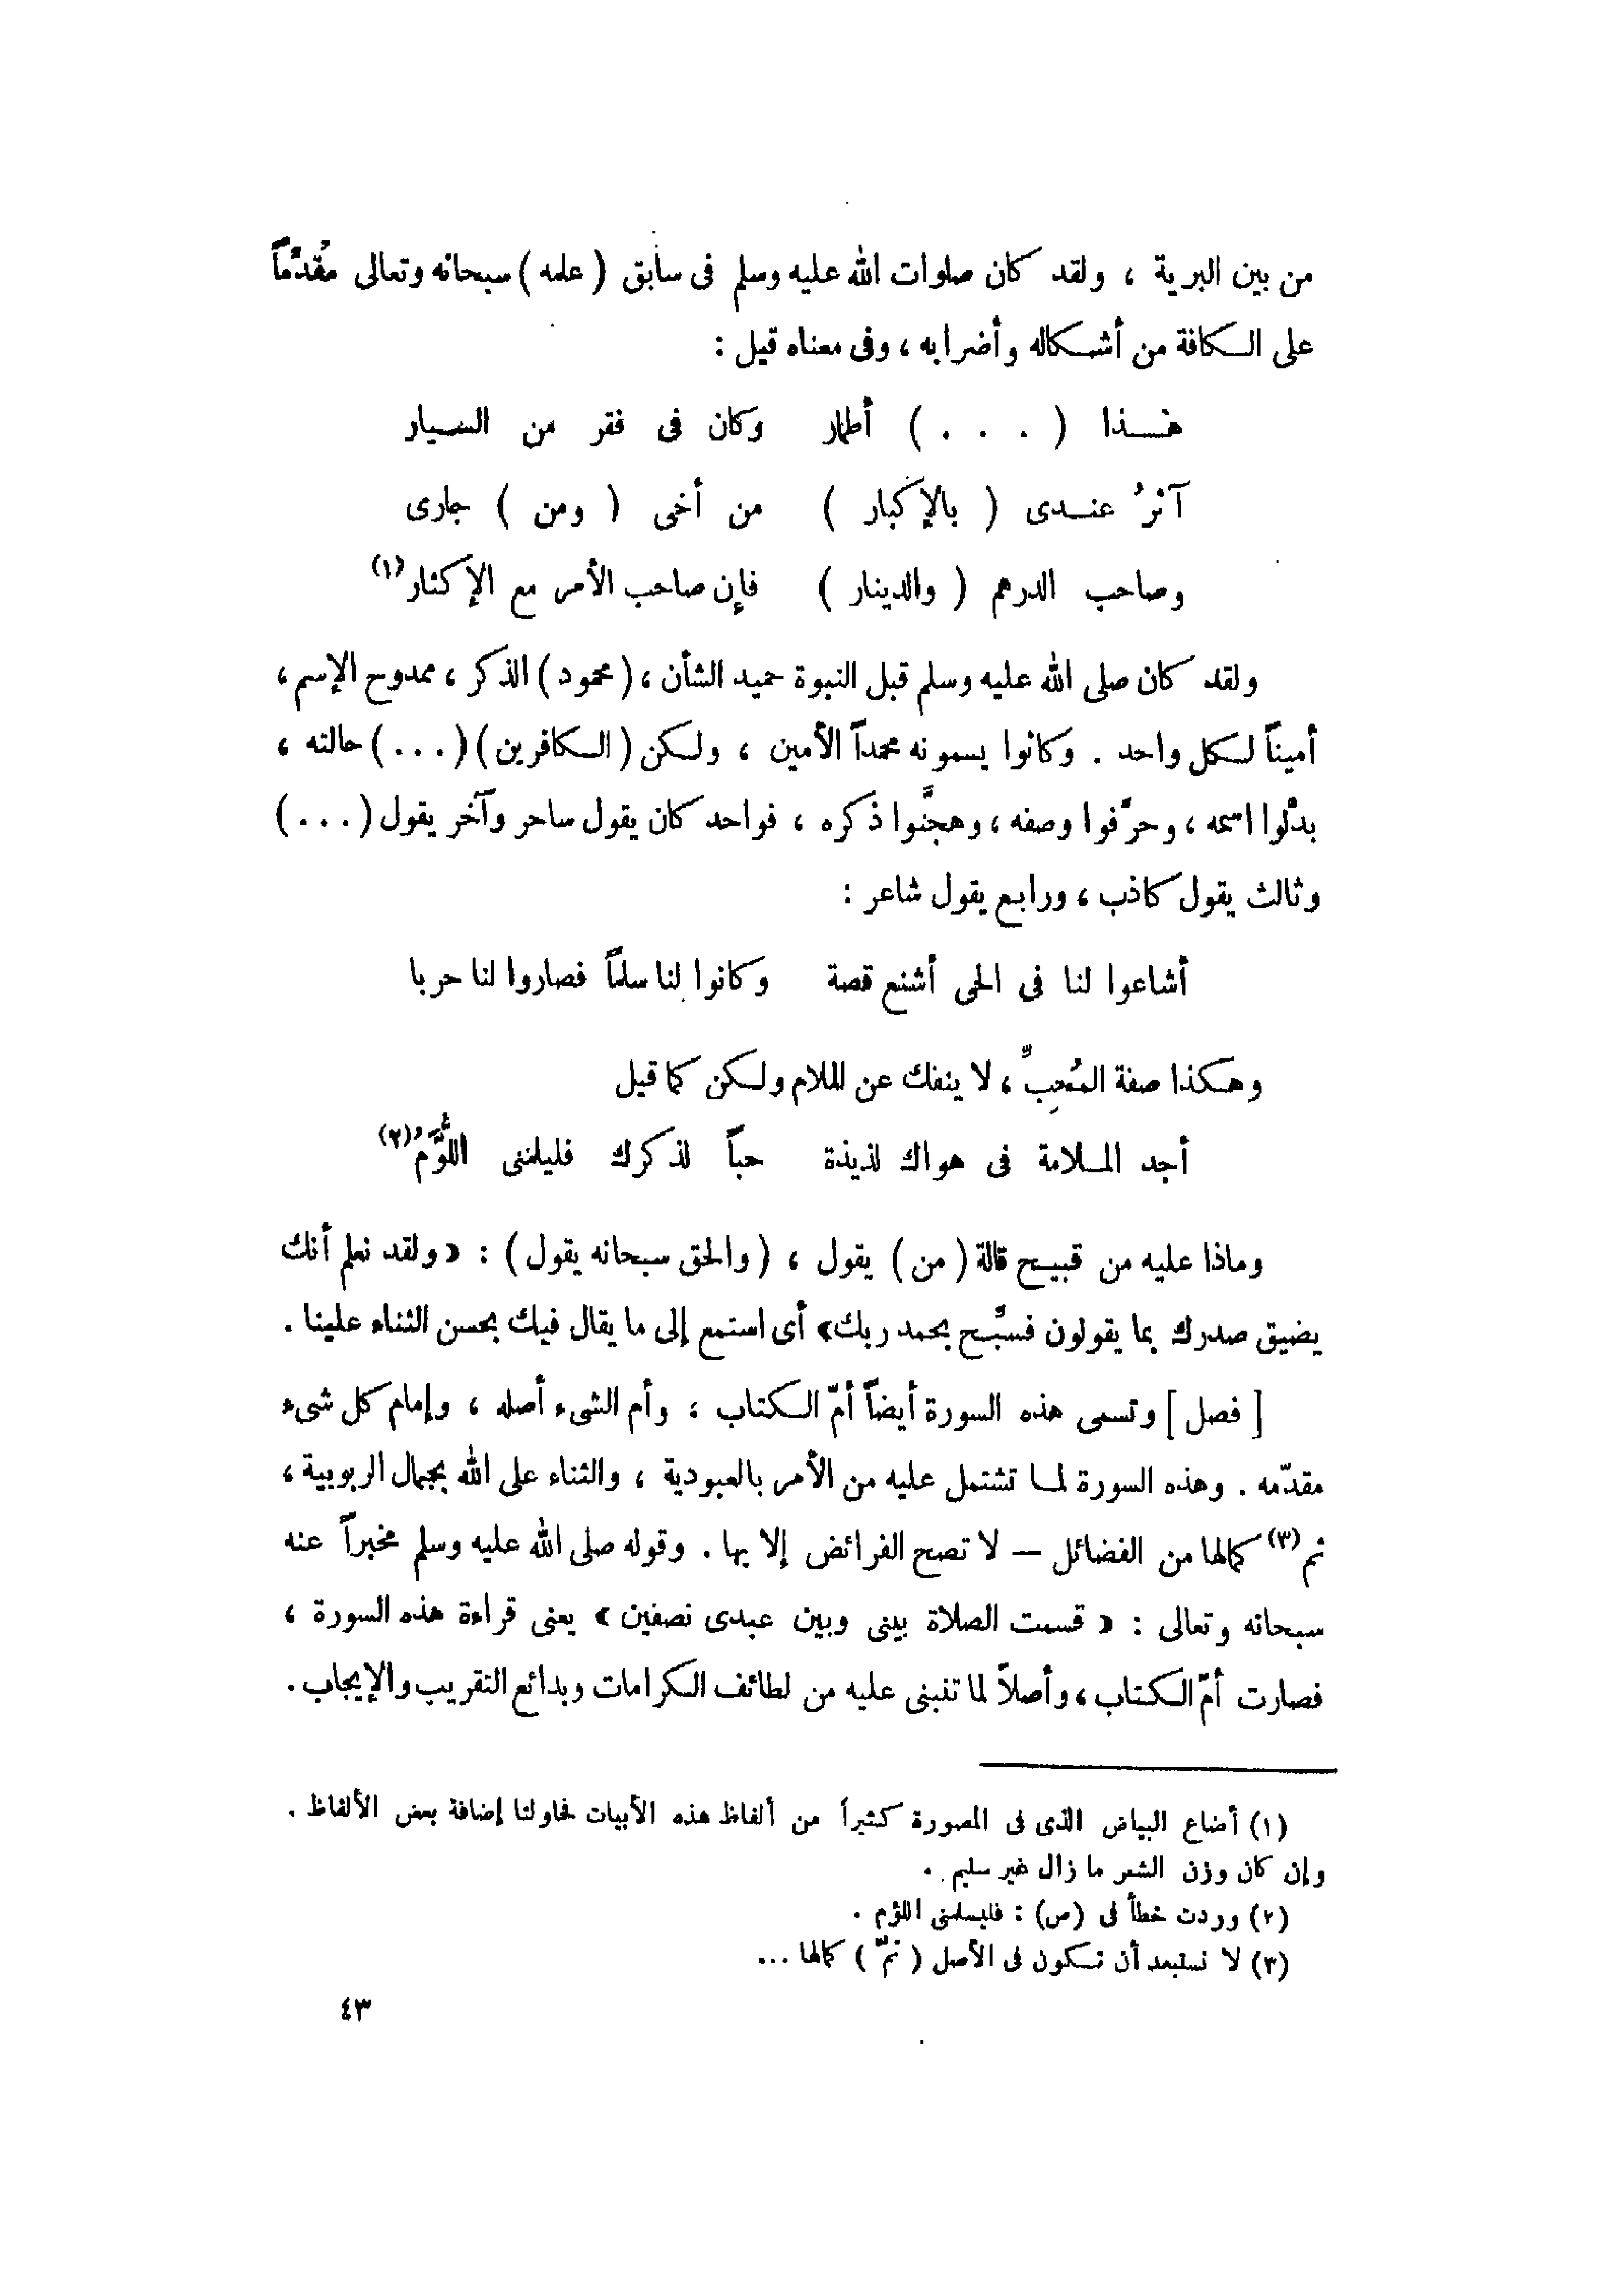 من بين البرية ، ولقد كان صلوات الله عليه وسلم فى سابق ( علمه ) سبحانه وتعالى مُقدَّماً
على الكافة من أشكاله وأضرابه ، وفى معناه قيل :
هذا ( . . . ) أطمار وكان فى فقر من اليسار
آثرُ عندى ( بالإكبار ) من أخى ( ومن ) جارى
وصاحب الدرهم ( والدينار ) فإن صاحب الأمر مع الإكثار(١)
ولقد كان صلى الله عليه وسلم قبل النبوة حميد الشأن ، ( محمود ) الذكر ، ممدوح الإسم ،
أميناً لكل واحد . وكانوا يسمونه محمداً الأمين ، ولكن ( الكافرين ) ( . . . ) حالته ،
بدَّلوا اسمه ، وحرَّفوا وصفه ، وهجَّنوا ذكره ، فواحد كان يقول ساحر وآخر يقول ( . . . )
وثالث يقول كاذب ، ورابع يقول شاعر :
أشاعوا لنا فى الحى أشنع قصة وكانوا لنا سلماً فصاروا لنا حربا
وهكذا صفة المُحِبِّ ، لا ينفك عن الملام ولكن كما قيل
أجد الملامة فى هواك لذيذة حباً لذكرك فليلمنى اللُّوَّمُ(٢)
وماذا عليه من قبيح قالة ( من ) يقول ، ( والحق سبحانه يقول ) : « ولقد نعلم أنك
يضيق صدرك بما يقولون فسبِّح بحمد ربك » أى استمع إلى ما يقال فيك بحسن الثناء علينا .
[ فصل ] وتسمى هذه السورة أيضاً أمّ الكتاب ، وأم الشىء أصله ، وإمام كل شىء
مقدّمه . وهذه السورة لما تشتمل عليه من الأمر بالعبودية ، والثناء على الله بجمال الربوبية ،
ثم(٣) كمالها من الفضائل — لا تصح الفرائض إلا بها . وقوله صلى الله عليه وسلم مخبراً عنه
سبحانه وتعالى : « قسمت الصلاة بينى وبين عبدى نصفين » يعنى قراءة هذه السورة ،
فصارت أمّ الكتاب ، وأصلاً لما تنبنى عليه من لطائف الكرامات وبدائع التقريب والإيجاب .
(١) أضاع البياض الذى فى المصورة كثيراً من ألفاظ هذه الأبيات فحاولنا إضافة بعض الألفاظ .
وإن كان وزن الشعر ما زال غير سليم .
(٢) وردت خطأ فى (ص) : فليسلمنى اللؤم .
(٣) لا نستبعد أن تكون فى الأصل ( تمّ ) كمالها ...
٤٣